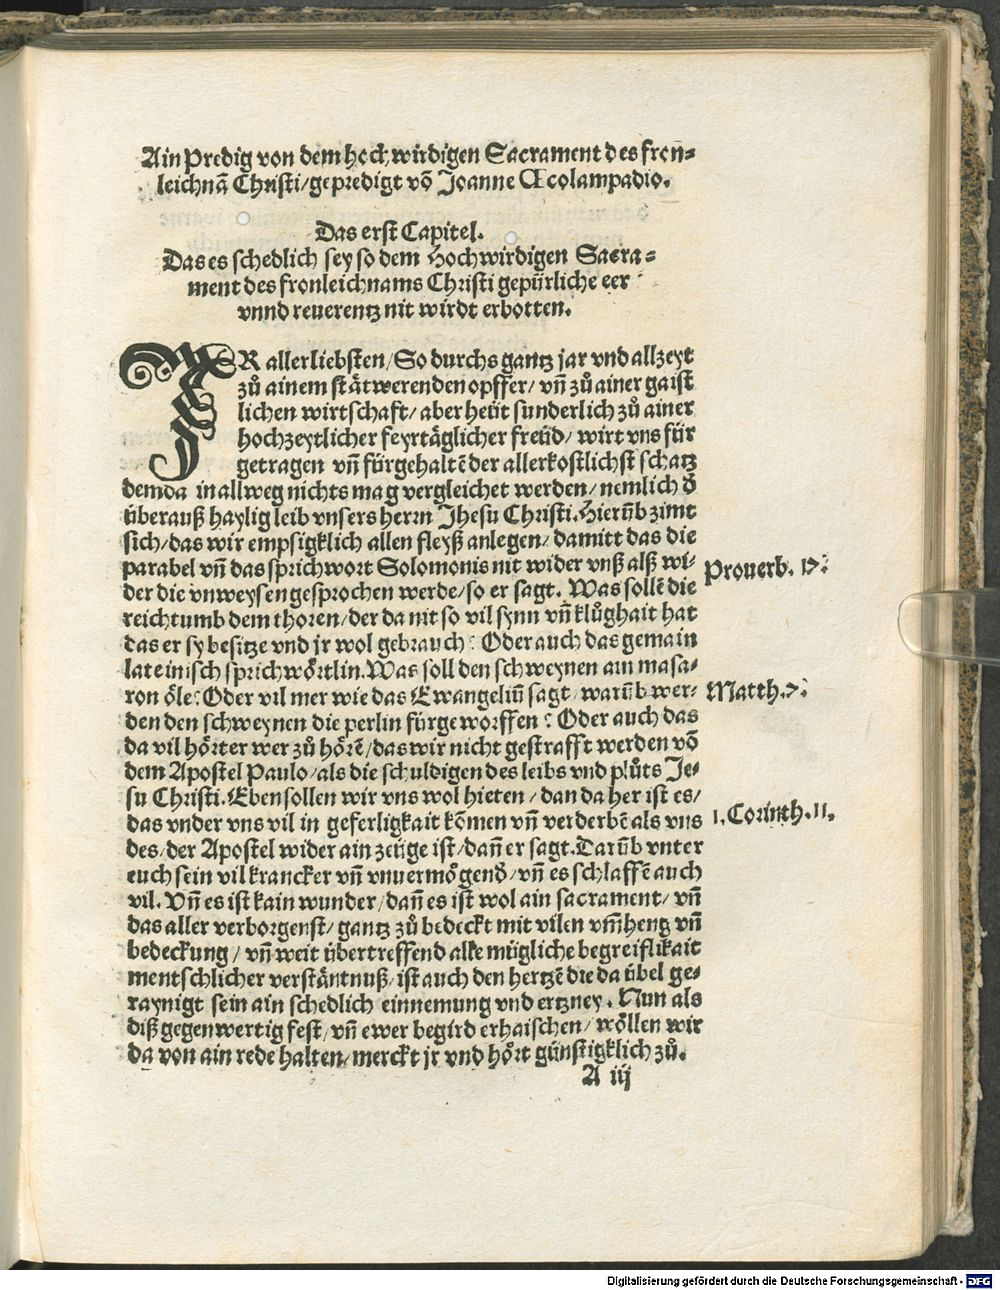 Ain Predig von dem hochwirdigen Sacrament des fron⸗
leichnā Christi/gepredigt võ Joanne Œcolampadio.
Das erst Capitel.
Das es schedlich sey so dem Hochwirdigen Sacra⸗
ment des fronleichnams Christi gepürliche eer
vnnd reuerentz nit wirdt erbotten.
IR allerliebsten/So durchs gantz jar vnd allzeyt
zů ainem stätwerenden opffer/ vñ zů ainer gaist
lichen wirtschaft/ aber heüt sunderlich zů ainer
hochzeytlicher feyrtäglicher freüd/ wirt vns für
getragen vñ fürgehaltē der allerkostlichst schatz
dem da in allweg nichts mag vergleichet werden/ nemlich ď
überauß haylig leib vnsers herrn Jhesu Christi. Hierūb zimt
sich/das wir empsigklich allen fleyß anlegen/ damitt das die
parabel vñ das sprichwort Solomonis nit wider vnß alß wi⸗
der die vnweysen gesprochen werde/so er sagt. Was sollē die
reichtumb dem thoren/der da nit so vil synn vñ klůghait hat
das er sy besitze vnd jr wol gebrauch? Oder auch das gemain
lateinisch sprichwörtlin. Was soll den schweynen ain masa⸗
ron öle? Oder vil mer wie das Ewangeliū sagt/ warūb wer⸗
den den schweynen die perlin fürgeworffen? Oder auch das
da vil hörter wer zů hörē/das wir nicht gestrafft werden võ
dem Apostel Paulo/als die schuldigen des leibs vnd plůts Je⸗
su Christi. Eben sollen wir vns wol hieten/ dan da her ist es/
das vnder vns vil in geferligkait kōmen vñ verderbē als vns
des/der Apostel wider ain zeüge ist/dañ er sagt. Darūb vnter
euch sein vil krancker vñ vnuermögend/ vñ es schlaffē auch
vil. Vñ es ist kain wunder/dañ es ist wol ain sacrament/ vñ
das aller verborgenst/ gantz zů bedeckt mit vilen vm̃heng vñ
bedeckung/ vñ weit übertreffend alle mügliche begreiflikait
mentschlicher verständtnuß/ist auch den hertzē die da übel ge⸗
raynigt sein ain schedlich einnemung vnd ertzney. Nun als
diß gegenwertig fest/ vñ ewer begird erhaischen/ wöllen wir
da von ain rede halten/ merckt jr vnd hört günstigklich zů.
A iij
Prouerb. 17.
Matth. 7.
1. Corinth. 11.
Digitalisierung gefördert durch die Deutsche Forschungsgemeinschaft - DFG